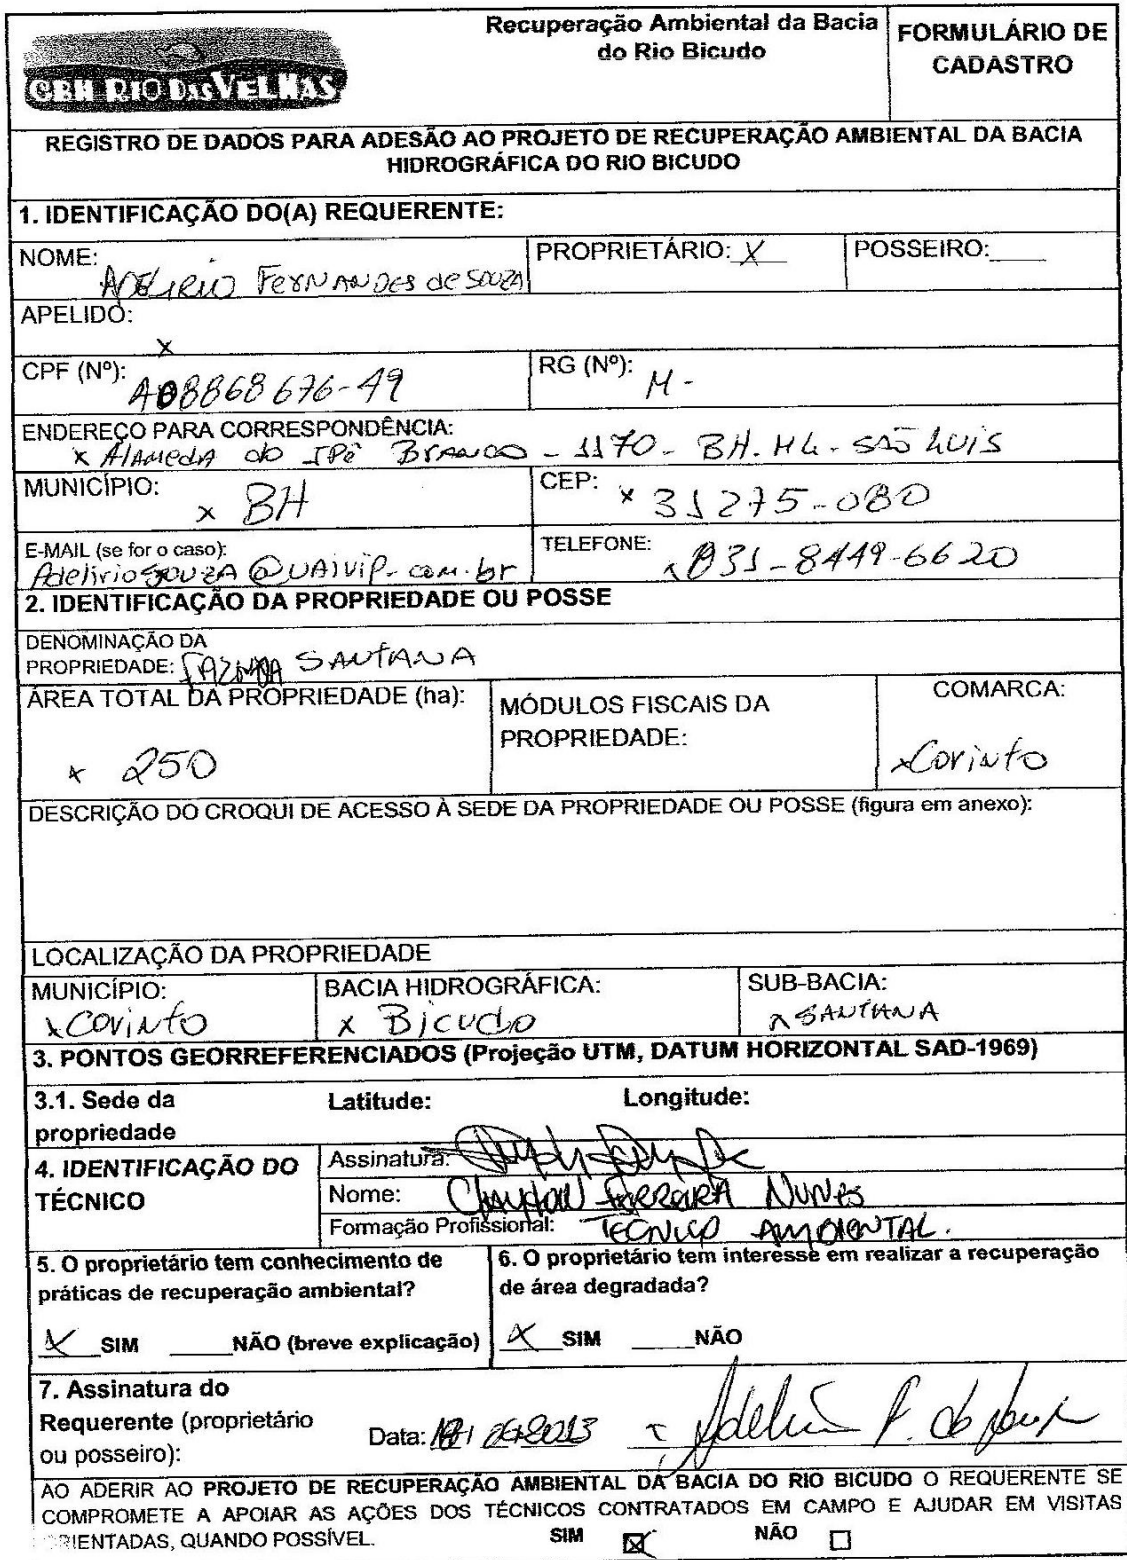 CBH RIO DAS VELHAS
Recuperação Ambiental da Bacia
do Rio Bicudo
FORMULÁRIO DE
CADASTRO
REGISTRO DE DADOS PARA ADESÃO AO PROJETO DE RECUPERAÇÃO AMBIENTAL DA BACIA
HIDROGRÁFICA DO RIO BICUDO
1. IDENTIFICAÇÃO DO(A) REQUERENTE:
NOME: PROPRIETÁRIO: X POSSEIRO:____
ADELIRIO FERNANDES de SOUZA
APELIDO:
x
CPF (Nº): RG (Nº):
8868676-49 M-
ENDEREÇO PARA CORRESPONDÊNCIA:
x Alameda do IPê Branco - 1170 - BH. MG - São Luis
MUNICÍPIO: x BH CEP: x 31275-080
E-MAIL (se for o caso): TELEFONE:
AdelirioSouza@UAIVIP.com.br x 031-8449-6620
2. IDENTIFICAÇÃO DA PROPRIEDADE OU POSSE
DENOMINAÇÃO DA
PROPRIEDADE: FAZENDA SANTANA
ÁREA TOTAL DA PROPRIEDADE (ha):
x 250
MÓDULOS FISCAIS DA
PROPRIEDADE:
COMARCA:
x Corinto
DESCRIÇÃO DO CROQUI DE ACESSO À SEDE DA PROPRIEDADE OU POSSE (figura em anexo):
LOCALIZAÇÃO DA PROPRIEDADE
MUNICÍPIO: BACIA HIDROGRÁFICA: SUB-BACIA:
x Corinto x Bicudo x SANTANA
3. PONTOS GEORREFERENCIADOS (Projeção UTM, DATUM HORIZONTAL SAD-1969)
3.1. Sede da
propriedade
Latitude: Longitude:
4. IDENTIFICAÇÃO DO
TÉCNICO
Assinatura:
Nome: Clayton FERREIRA NUNES
Formação Profissional: TECNICO AMBIENTAL.
5. O proprietário tem conhecimento de
práticas de recuperação ambiental?
X SIM _____NÃO (breve explicação)
6. O proprietário tem interesse em realizar a recuperação
de área degradada?
X SIM _____NÃO
7. Assinatura do
Requerente (proprietário
ou posseiro):
Data: 2013 x
AO ADERIR AO PROJETO DE RECUPERAÇÃO AMBIENTAL DA BACIA DO RIO BICUDO O REQUERENTE SE
COMPROMETE A APOIAR AS AÇÕES DOS TÉCNICOS CONTRATADOS EM CAMPO E AJUDAR EM VISITAS
ORIENTADAS, QUANDO POSSÍVEL. SIM ☒ NÃO ☐